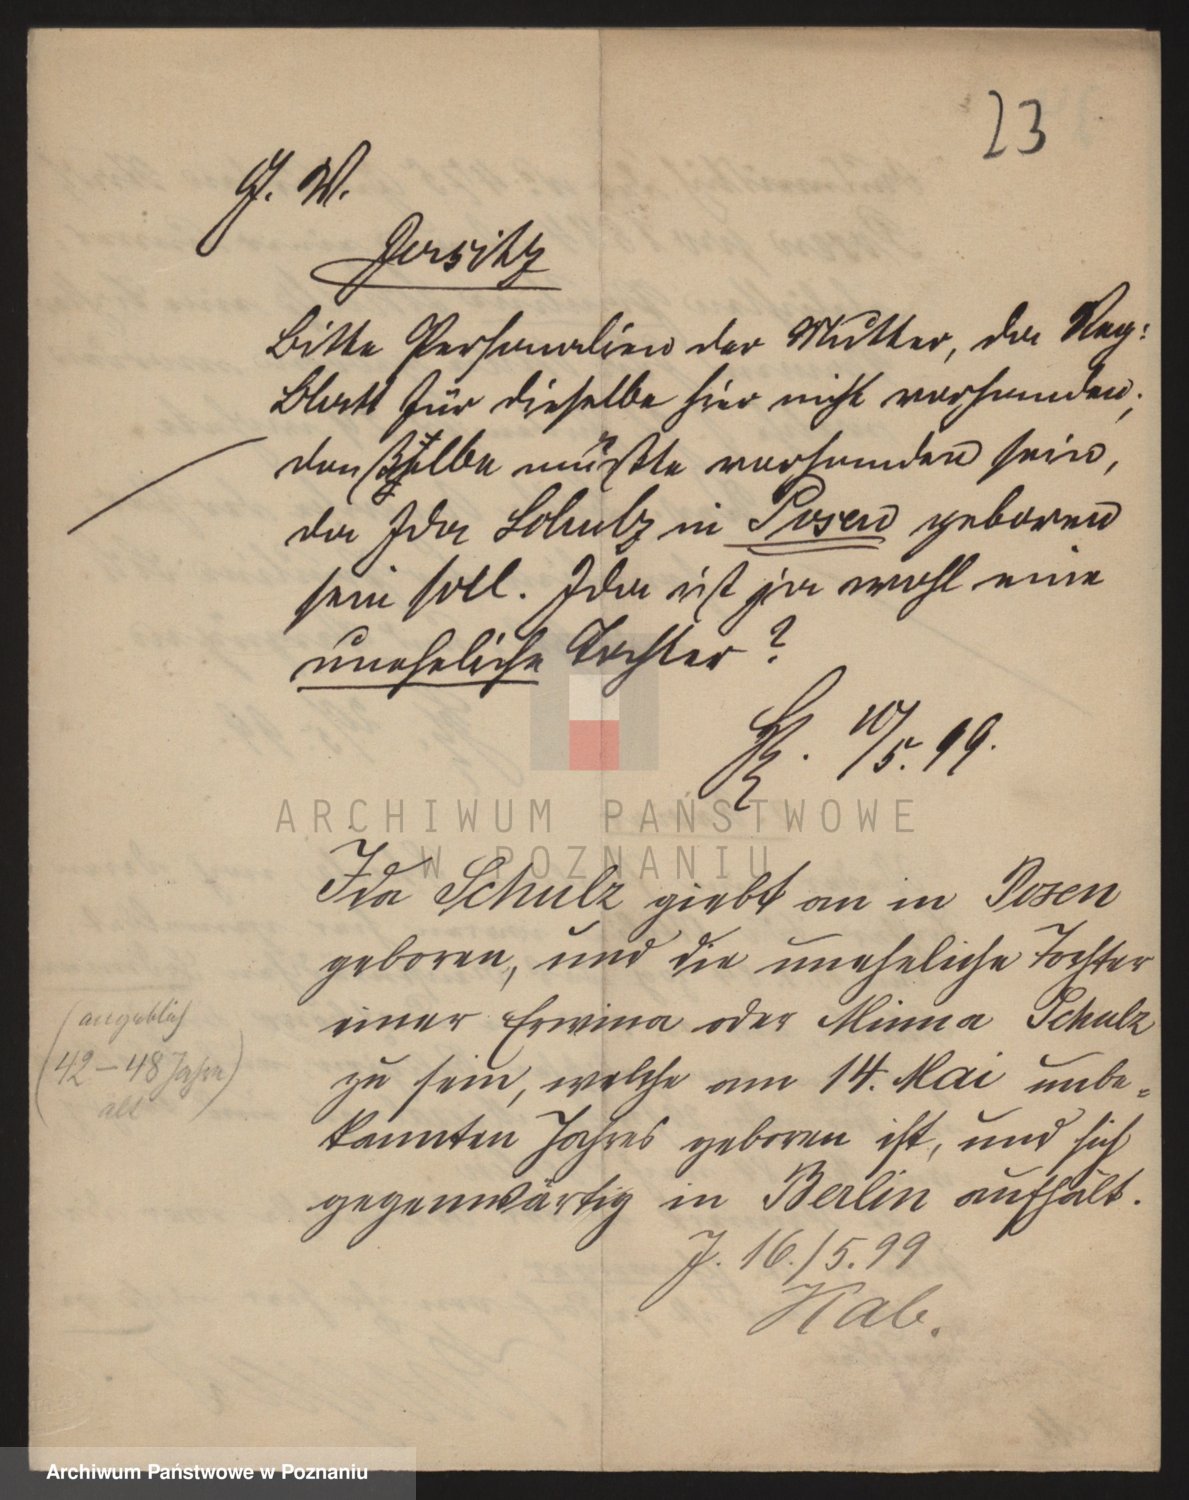 23
J. W.
Jersitz
Bitte Personalien der Mutter, da Reg:
Blatt für dieselbe hier nicht vorhanden;
müßte vorhanden sein,
da Ida Schulz in Posen geboren
sein soll. Ida ist ja wohl eine
uneheliche Tochter?
10/5. 99.
Ida Schulz giebt an in Posen
geboren, und die uneheliche Tochter
einer Erwina oder Minna Schulz
zu sein, welche am 14. Mai unbe-
kannten Jahres geboren ist, und sich
gegenwärtig in Berlin aufhält.
J. 16./5. 99
Kab.
(angeblich
42–48 Jahre
alt)
ARCHIWUM PAŃSTWOWE
W POZNANIU
Archiwum Państwowe w Poznaniu